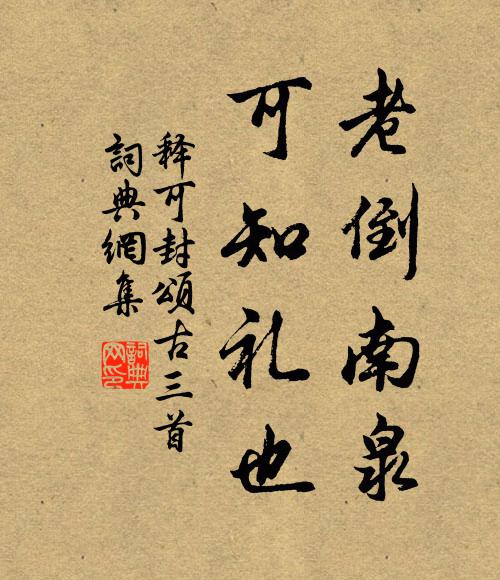 老倒南泉
可知礼也
释可封頌古三首
詞典網集
詞典網印